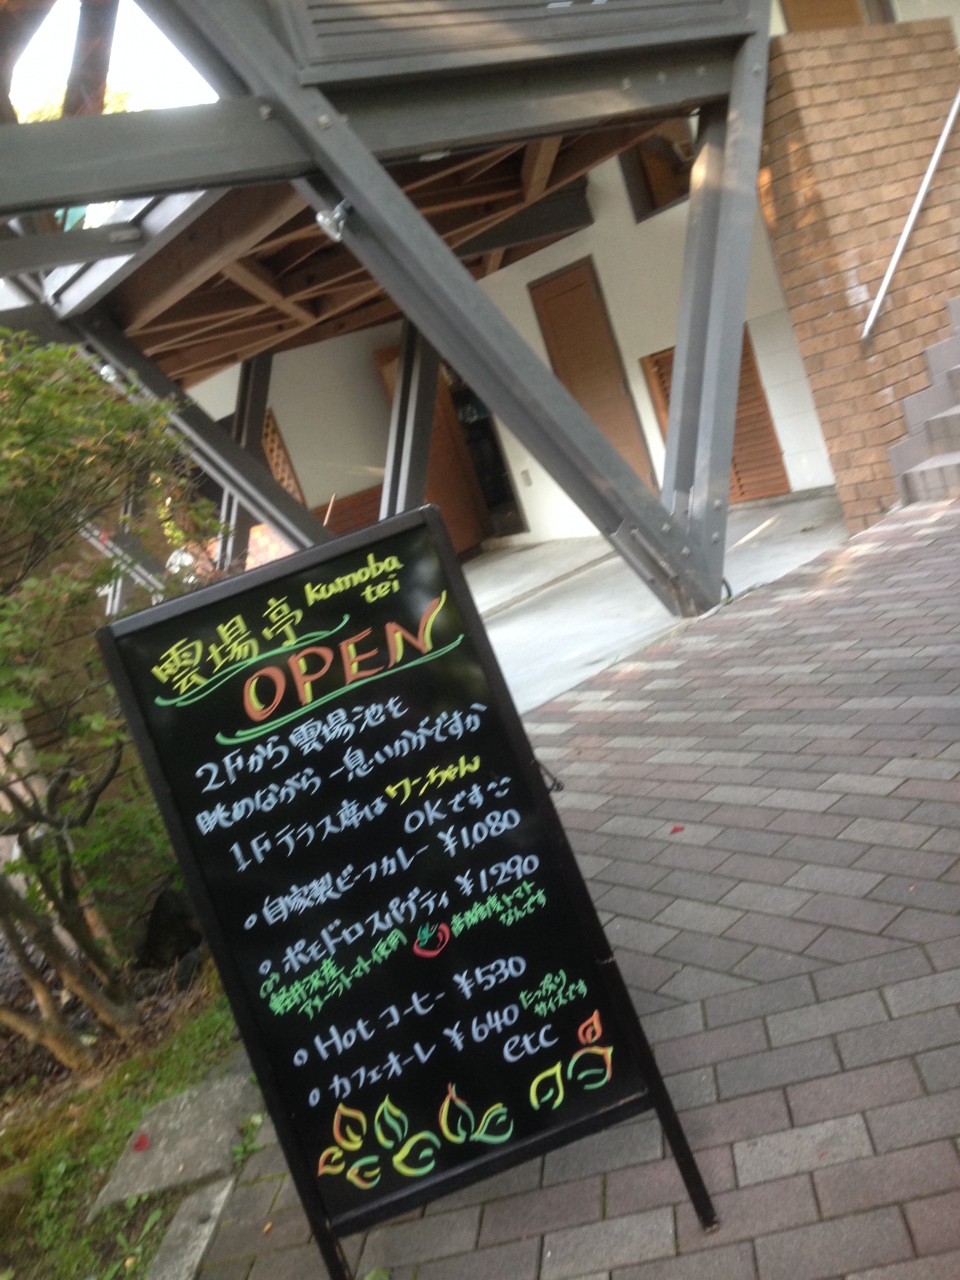 雲場亭 kumoba tei
OPEN
2Fから雲場池を
眺めながら一息いかがですか
1Fテラス席はワンちゃん
OKです
自家製ビーフカレー ¥1,080
ポモドロスパゲティ ¥1,290
軽井沢産
アメーラトマト使用
高糖度トマト
なんです
Hotコーヒー ¥530
カフェオーレ ¥640 たっぷり
サイズです
etc